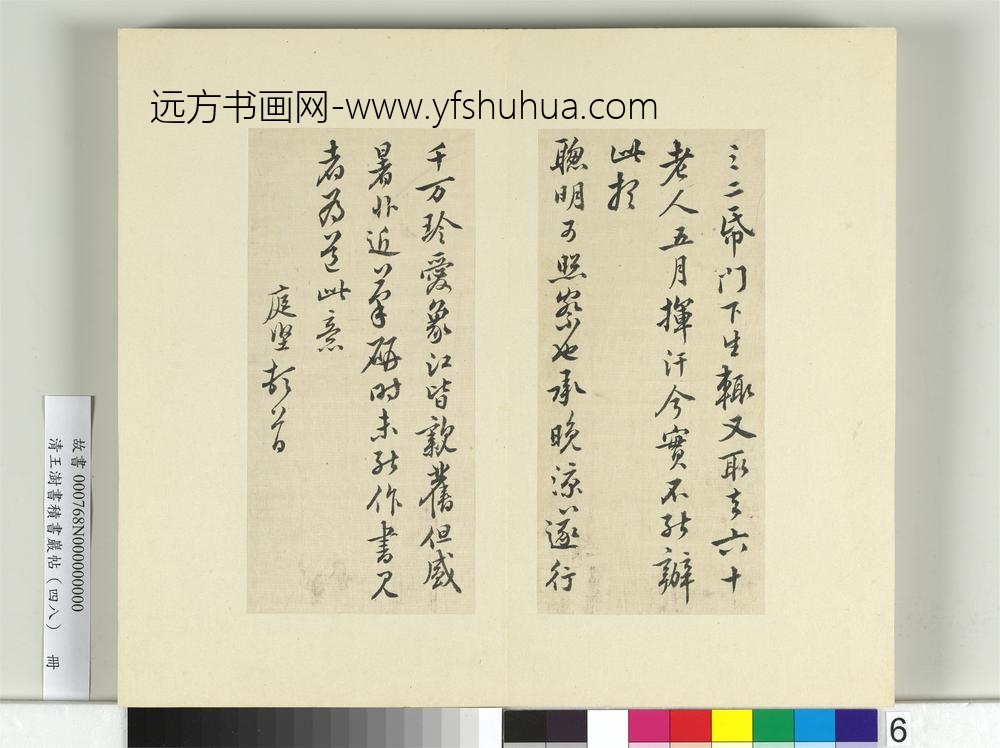 远方书画网-www.yfshuhua.com
三二帋门下生輙又取去六十
老人五月揮汗今實不能辦
此想
聰明可照察也承晚涼遂行
千万珍愛象江皆親舊但盛
暑非近筆研時未能作書見
者為道此意
庭堅頓首
故書 000768N000000000
清王澍書積書巖帖(四八) 冊
6